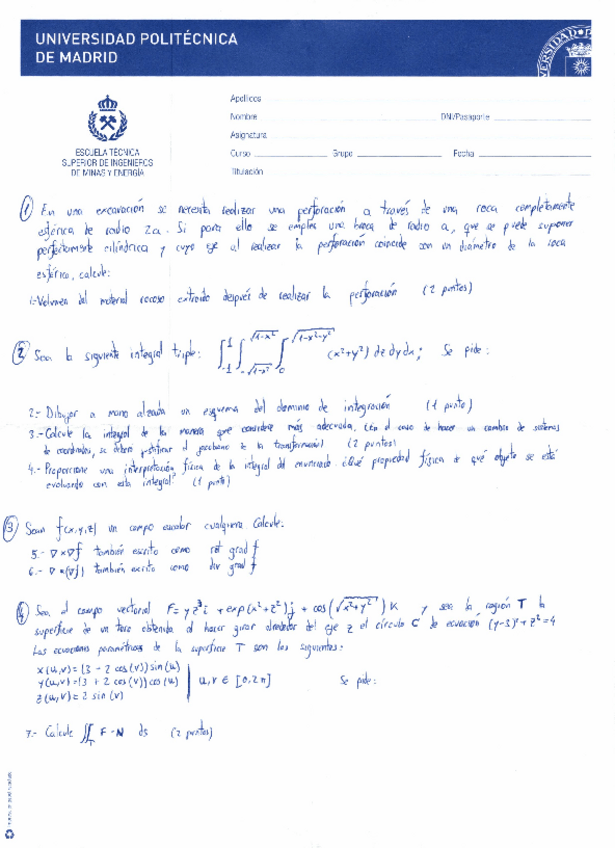 UNIVERSIDAD POLITÉCNICA
DE MADRID
ESCUELA TÉCNICA
SUPERIOR DE INGENIEROS
DE MINAS Y ENERGÍA
Apellidos
Nombre DNI/Pasaporte
Asignatura
Curso Grupo Fecha
Titulación
1 En una excavación se necesita realizar una perforación a través de una roca completamente
esférica de radio 2a. Si para ello se emplea una broca de radio a, que se puede suponer
perfectamente cilíndrica y cuyo eje al realizar la perforación coincide con un diámetro de la roca
esférica, calcule:
1.-Volumen del material rocoso extraído después de realizar la perforación (2 puntos)
2 Sea la siguiente integral triple: ∫_{-1}^{1} ∫_{-√(1-x²)}^{√(1-x²)} ∫_{0}^{√(1-x²-y²)} (x²+y²) dz dy dx; Se pide:
2.- Dibujar a mano alzada un esquema del dominio de integración (1 punto)
3.-Calcule la integral de la manera que considere más adecuada, (en el caso de hacer un cambio de sistemas
de coordenadas, se deberá justificar el jacobiano de la transformación) (2 puntos)
4.- Proporcione una interpretación física de la integral del enunciado. ¿Qué propiedad física de qué objeto se está
evaluando con esta integral? (1 punto)
3 Sean f(x,y,z) un campo escalar cualquiera Calcule:
5.- ∇×∇f también escrito como rot grad f
6.- ∇•(∇f) también escrito como div grad f
4 Sea el campo vectorial F= y z³ i + exp(x²+z²) j + cos(√(x²+y²)) K y sea la región T la
superficie de un toro obtenida al hacer girar alrededor del eje z el círculo C de ecuación (y-3)²+z²=4
Las ecuaciones paramétricas de la superficie T son las siguientes:
x(u,v)=(3 + 2 cos(v)) sin(u)
y(u,v)=(3 + 2 cos(v)) cos(u) u,v ∈ [0,2π] Se pide:
z(u,v)=2 sin(v)
7.- Calcule ∬_T F·N ds (2 puntos)